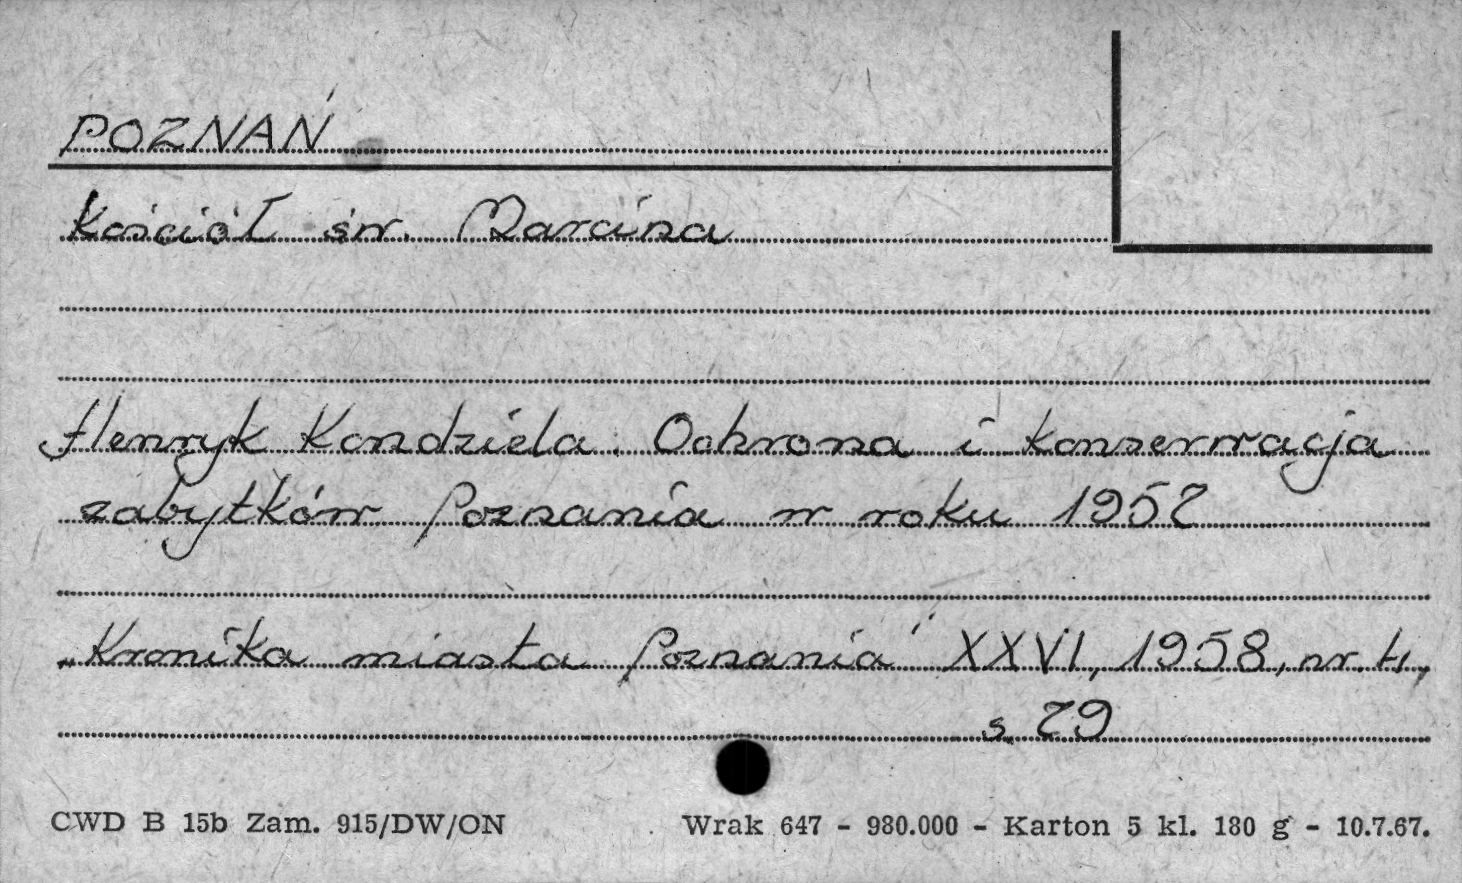 POZNAŃ
Kościół św. Marcina
Henryk Kondziela. Ochrona i konserwacja
zabytków Poznania w roku 1957
„Kronika miasta Poznania" XXVI, 1958, nr. 4,
s. 79
CWD B 15b Zam. 915/DW/ON Wrak 647 - 980.000 - Karton 5 kl. 180 g - 10.7.67.